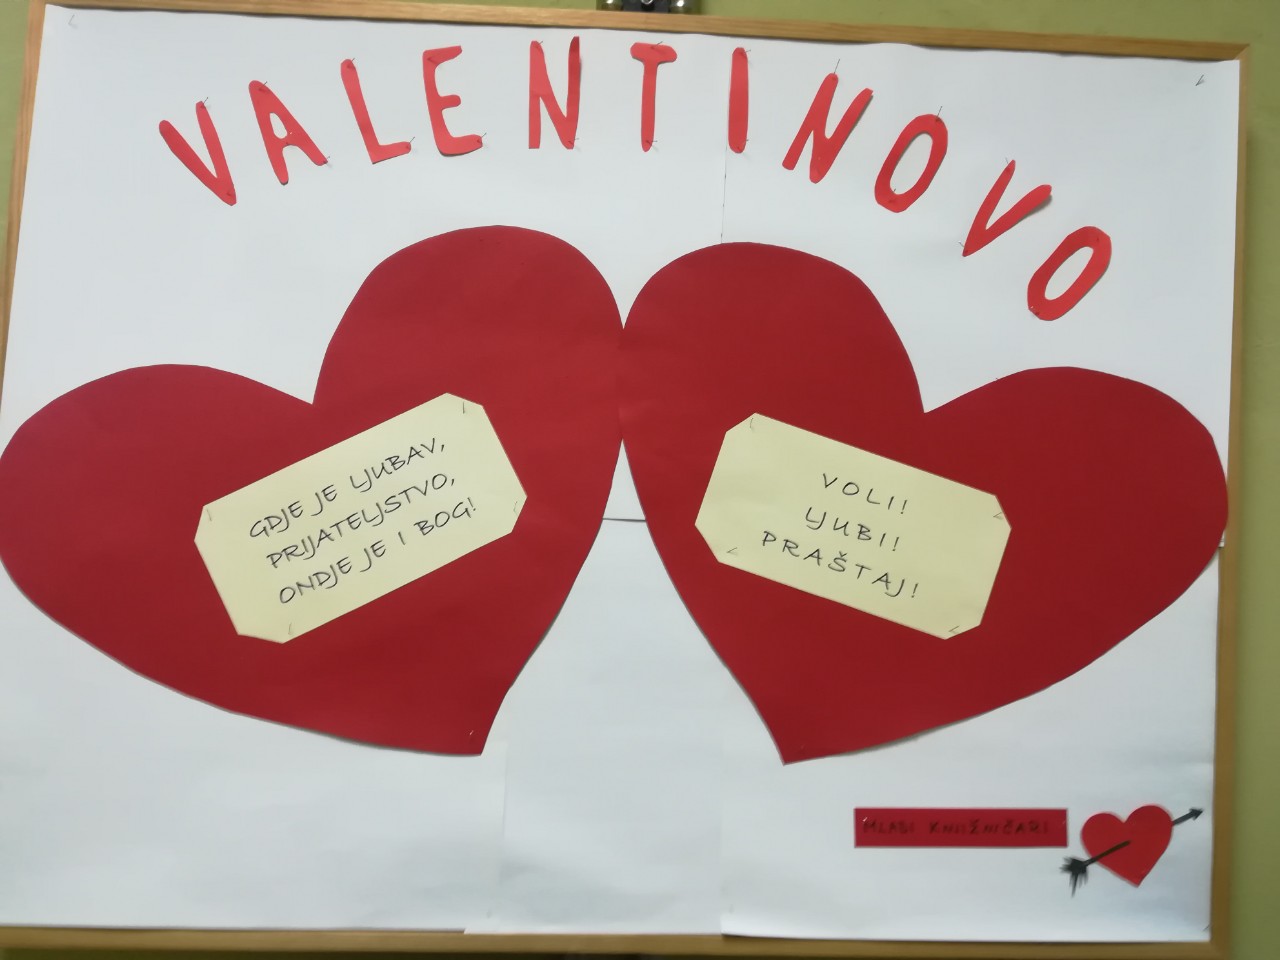 VALENTINOVO
GDJE JE LJUBAV,
PRIJATELJSTVO,
ONDJE JE I BOG!
VOLI!
LJUBI!
PRAŠTAJ!
MLADI KNJIŽNIČARI